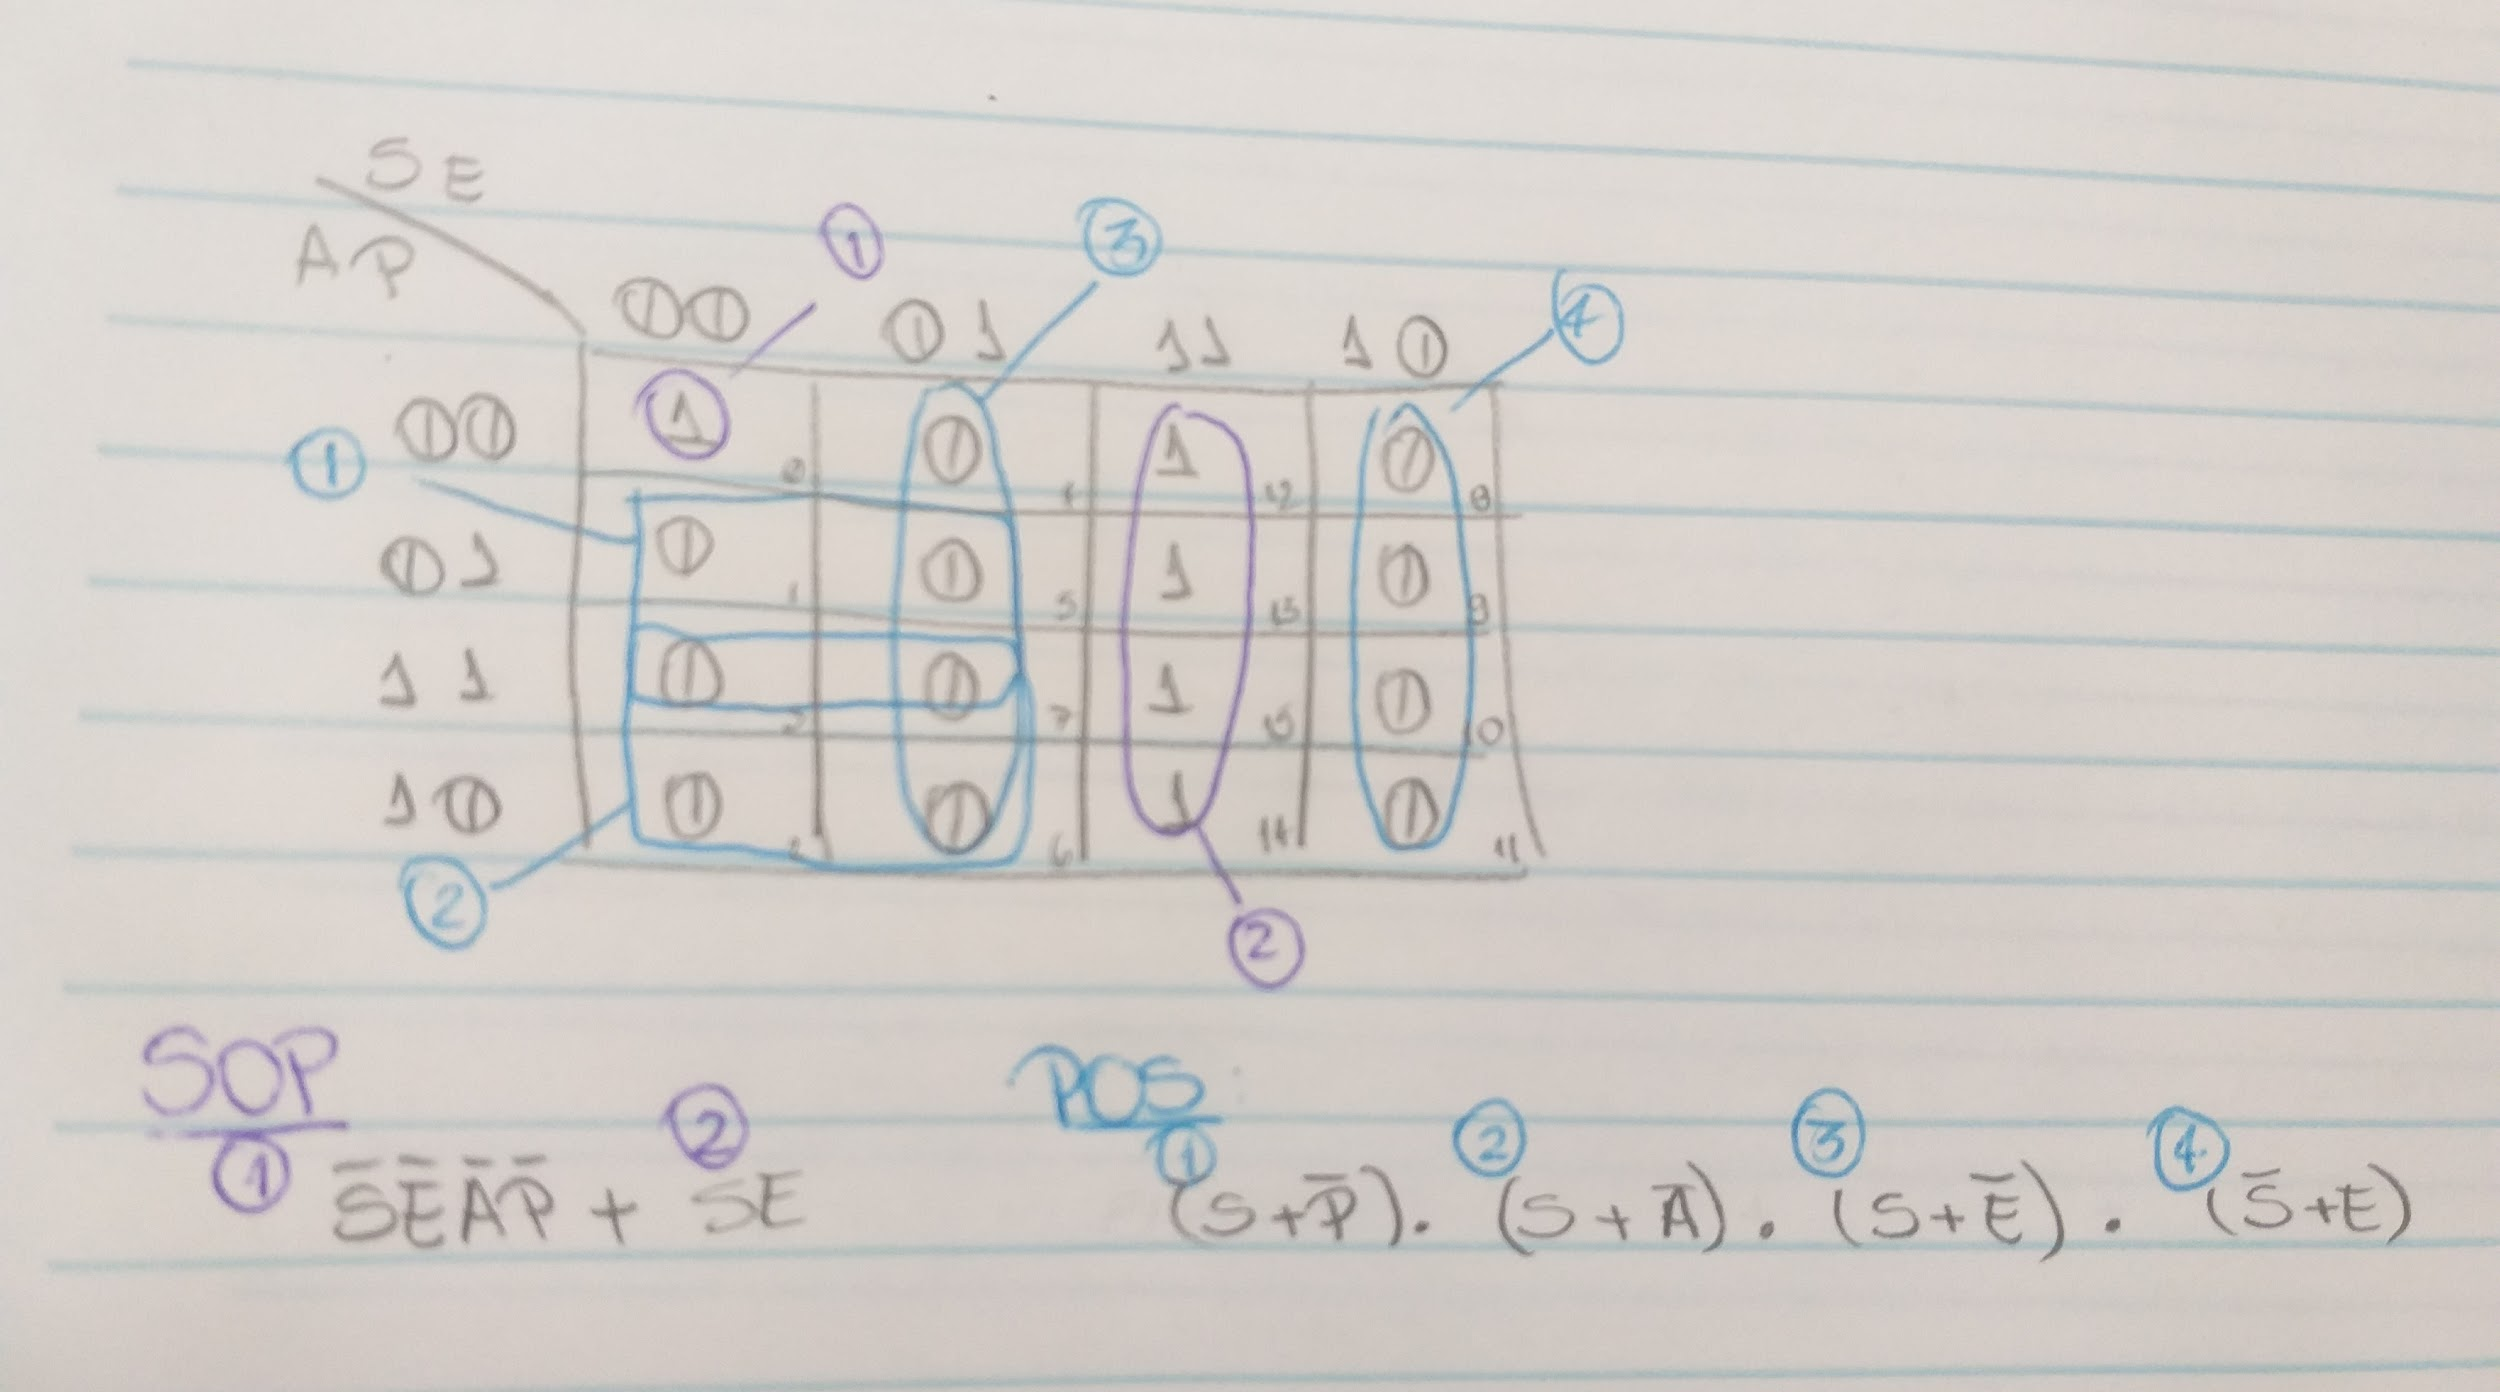 SE
AP
① ③ ④
00 01 11 10
00 1 0 0 1 4 12 0 8
① 01 0 1 0 5 1 13 0 9
11 0 3 0 7 1 15 0 10
10 0 2 0 6 1 14 0 11
② ②
SOP POS
① S̅E̅A̅P̅ + ② SE ① (S+P̅). ② (S+A̅). ③ (S+E̅). ④ (S̅+E)